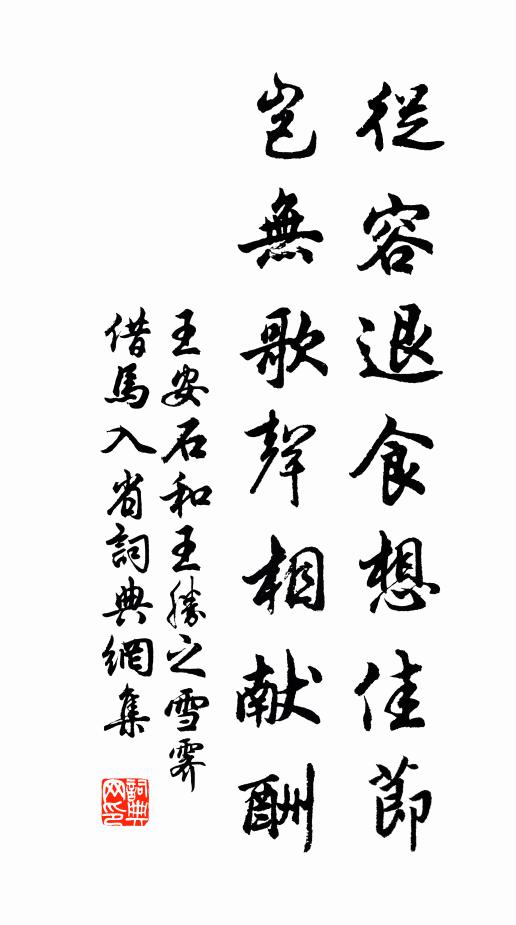 從容退食想佳節
豈無歌聲相献酬
王安石和王勝之雪霽
借馬入省詞典網集
詞典
网印